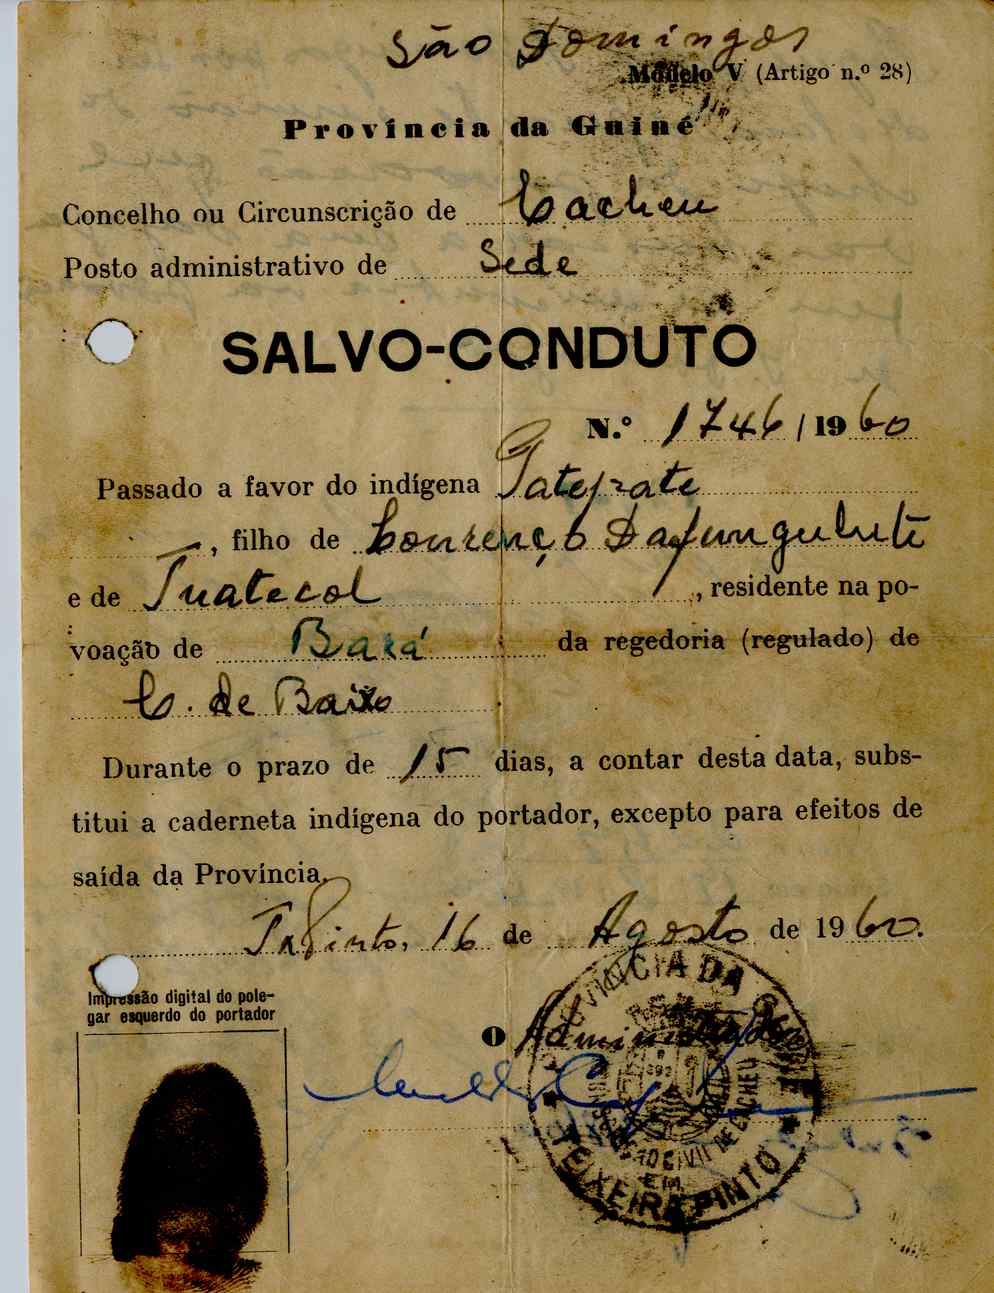 São Domingos
Modelo V (Artigo n.º 28)
Província da Guiné
Concelho ou Circunscrição de Cacheu
Posto administrativo de Sede
SALVO-CONDUTO
N.º 1746/1960
Passado a favor do indígena
, filho de Lourenço
e de Tuatecol, residente na po-
voação de Bará da regedoria (regulado) de
C. de Baixo
Durante o prazo de 15 dias, a contar desta data, subs-
titui a caderneta indígena do portador, excepto para efeitos de
saída da Província.
T. Pinto, 16 de Agosto de 1960.
Impressão digital do pole-
gar esquerdo do portador
O Administrador
PROVÍNCIA DA GUINÉ
TEIXEIRA PINTO